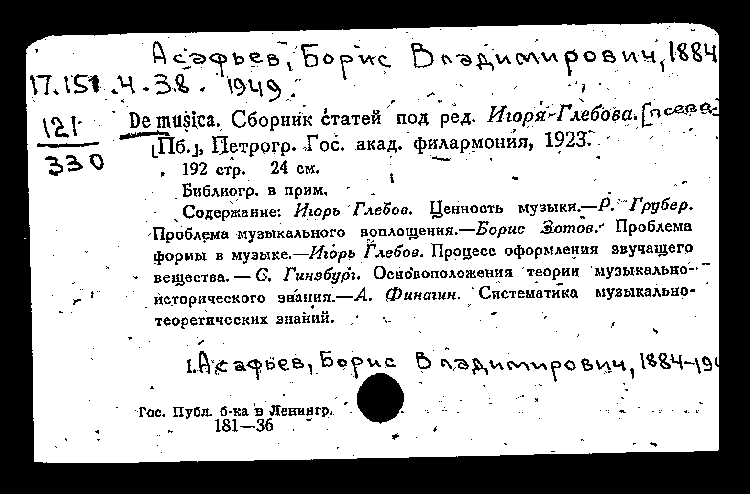 Асафьев, Борис Владимирович, 1884
17.151.4.38. 1949.
121
330
De musica. Сборник статей под ред. Игоря Глебова. [псевд.
[Пб.], Петрогр. Гос. акад. филармония, 1923.
192 стр. 24 см.
Библиогр. в прим.
Содержание: Игорь Глебов. Ценность музыки.—Р. Грубер.
Проблема музыкального воплощения.—Борис Зотов. Проблема
формы в музыке.—Игорь Глебов. Процесс оформления звучащего
вещества.—С. Гинзбург. Основоположения теории музыкально-
исторического знания.—А. Финагин. Систематика музыкально-
теоретических знаний.
1. Асафьев, Борис Владимирович, 1884-194
Гос. Публ. б-ка в Ленингр.
181—36